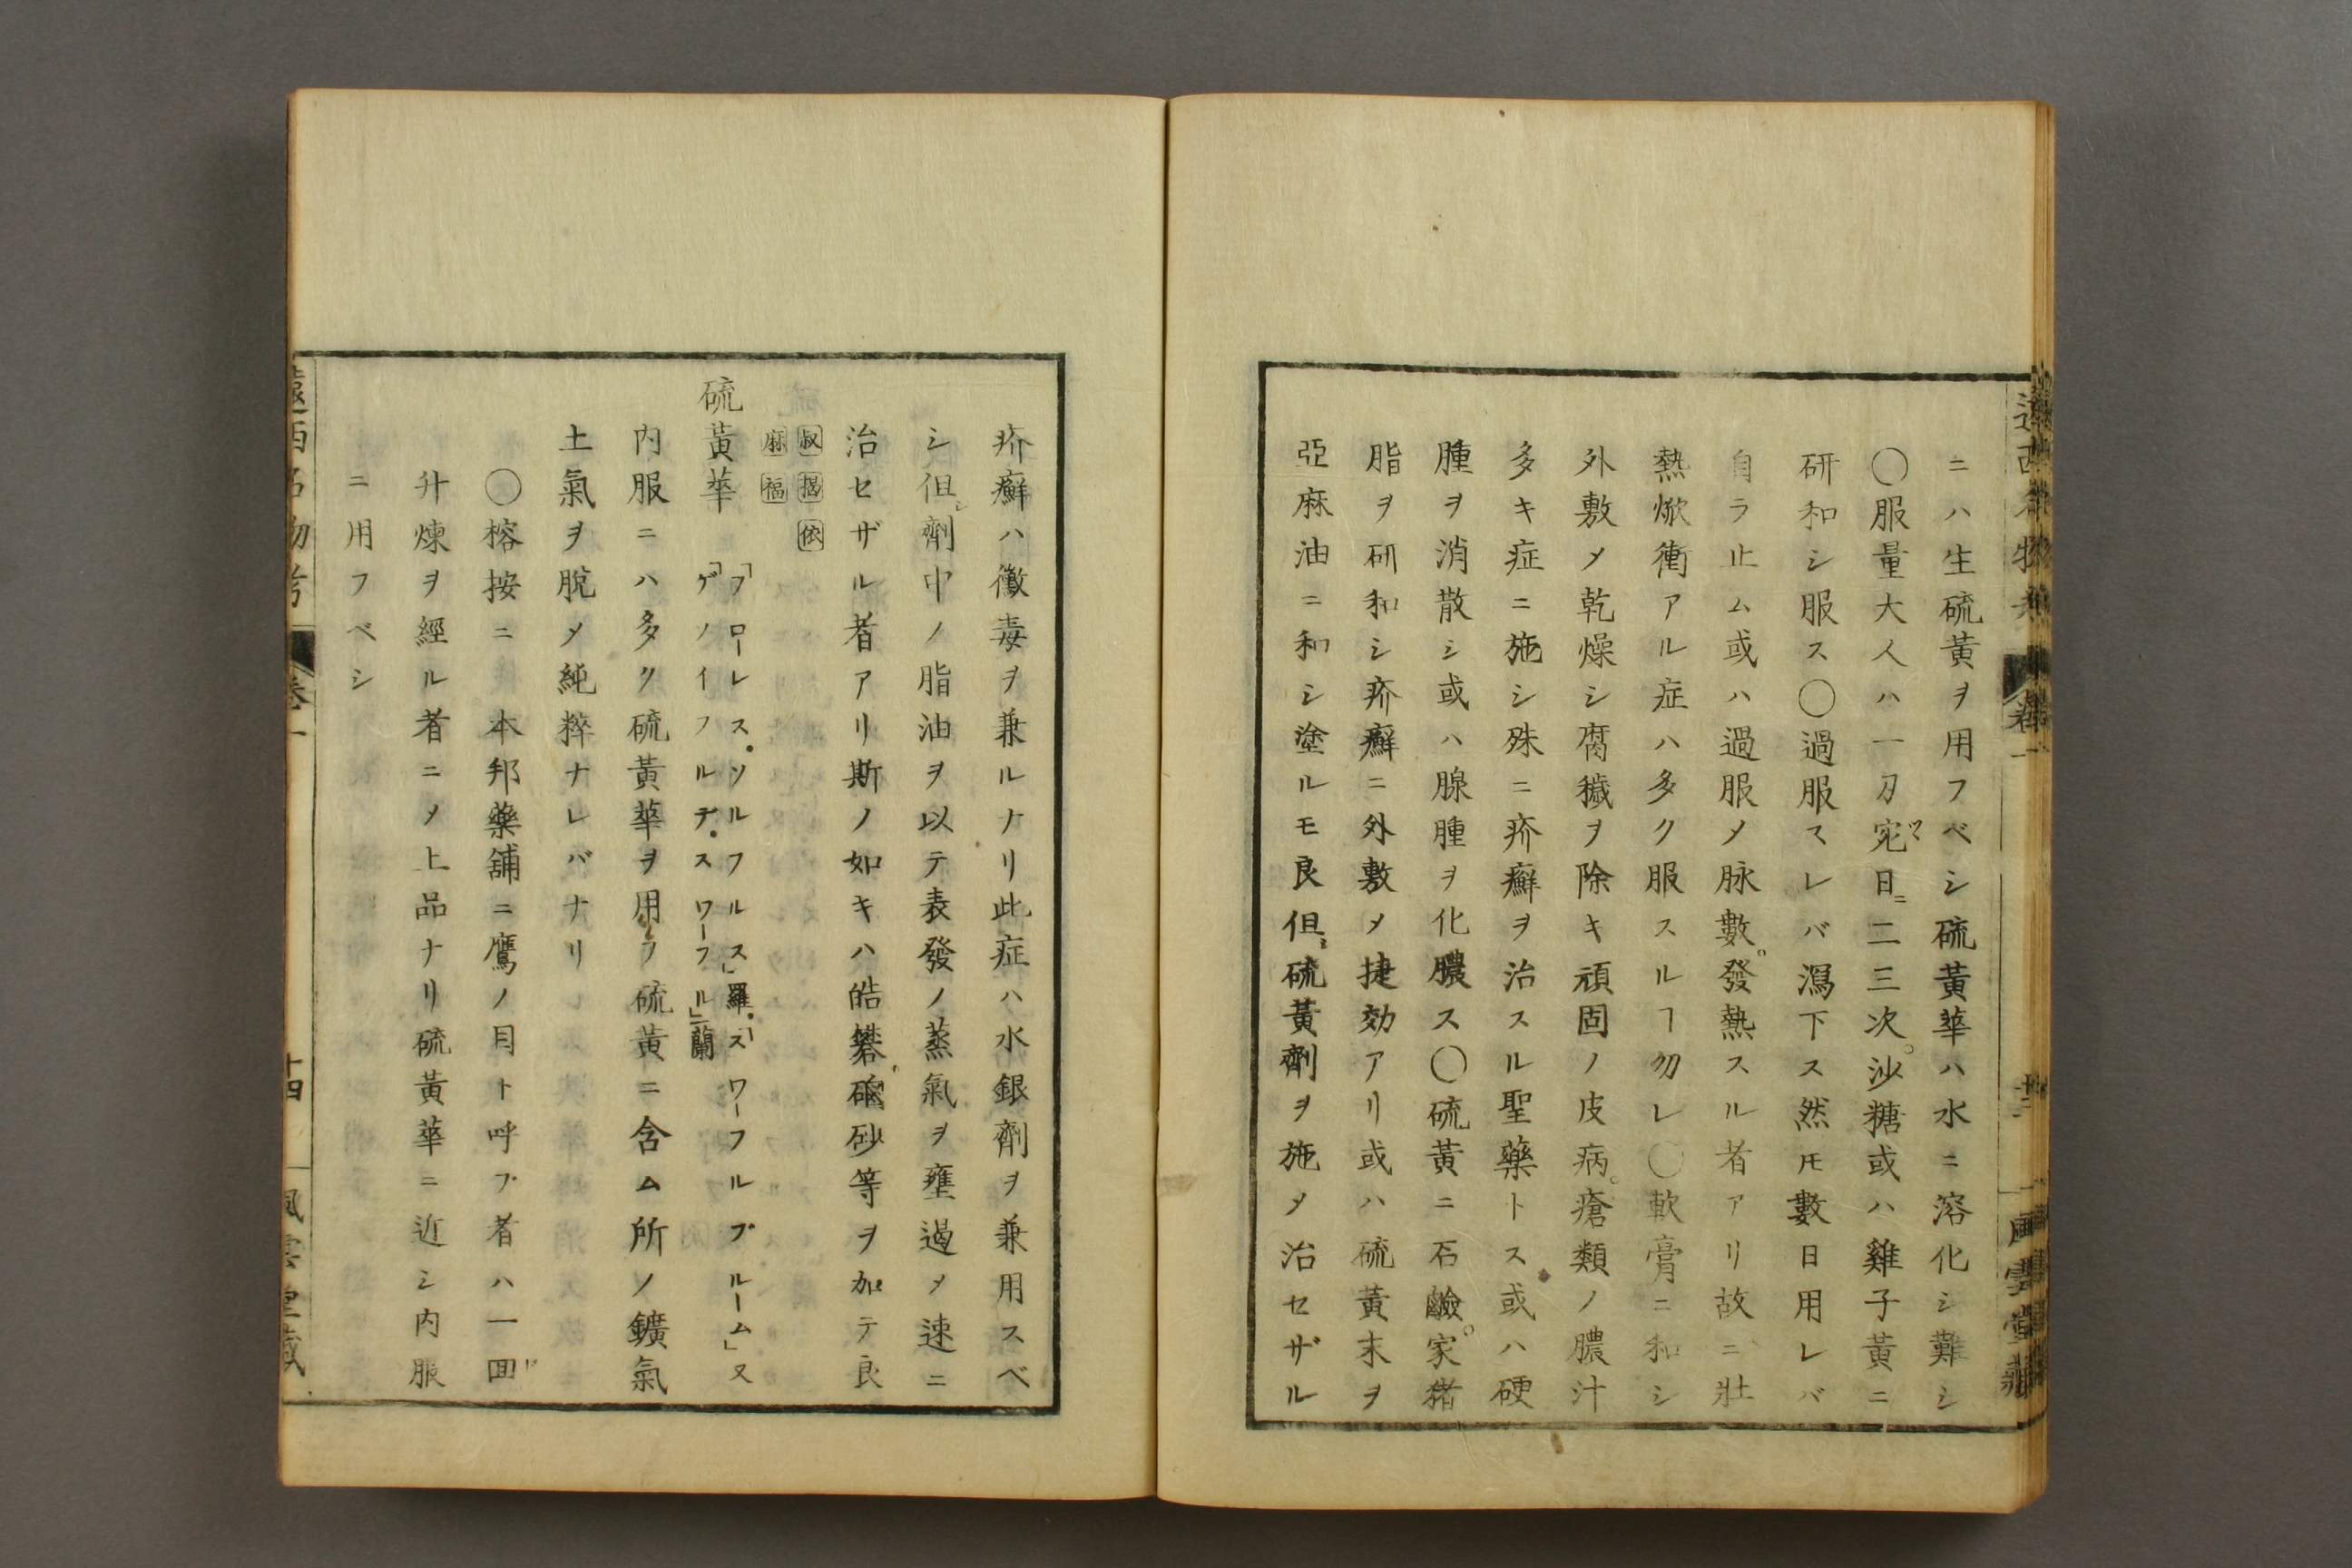 ニハ生硫黃ヲ用フベシ硫黃華ハ水ニ溶化シ難シ
〇服量大人ハ一刄宛日ニ二三次。沙糖或ハ雞子黃ニ
研和シ服ス〇過服スレバ瀉下ス然𪜈數日用レバ
自ラ止ム或ハ過服乄脉數。發熱スル者アリ故ニ壯
熱焮衝アル症ハ多ク服スルヿ勿レ〇軟膏ニ和シ
外敷乄乾燥シ腐穢ヲ除キ頑固ノ皮病。瘡類ノ膿汁
多キ症ニ施シ殊ニ疥癬ヲ治スル聖藥トス或ハ硬
腫ヲ消散シ或ハ腺腫ヲ化膿ス〇硫黃ニ石鹼。家猪
脂ヲ研和シ疥癬ニ外敷乄捷効アリ或ハ硫黃末ヲ
亞麻油ニ和シ塗ルモ良但シ硫黃劑ヲ施乄治セザル
疥癬ハ黴毒ヲ兼ルナリ此症ハ水銀劑ヲ兼用スベ
シ但シ劑中ノ脂油ヲ以テ表發ノ蒸氣ヲ壅遏乄速ニ
治セザル者アリ斯ノ如キハ皓礬。硇砂等ヲ加テ良
叔 揭 依
麻 福
硫黃華
「フローレス・ソルフルス」羅・ハスワーフルブルーム」又
「ゲノイフルデ・スワーフル」蘭
內服ニハ多ク硫黃華ヲ用フ硫黃ニ含ム所ノ鑛氣
土氣ヲ脫乄純粹ナレバナリ
〇榕按ニ本邦藥舖ニ鷹ノ目ト呼ブ者ハ一回
升煉ヲ經ル者ニ乄上品ナリ硫黃華ニ近シ內服
ニ用フベシ
遠西名物考
卷一
十四
風雲堂藏